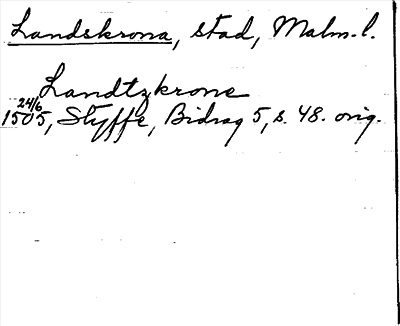 Landskrona, stad, Malm.l.
Landtzkrone
24/6
1505, Styffe, Bidrag 5, s. 48. orig.